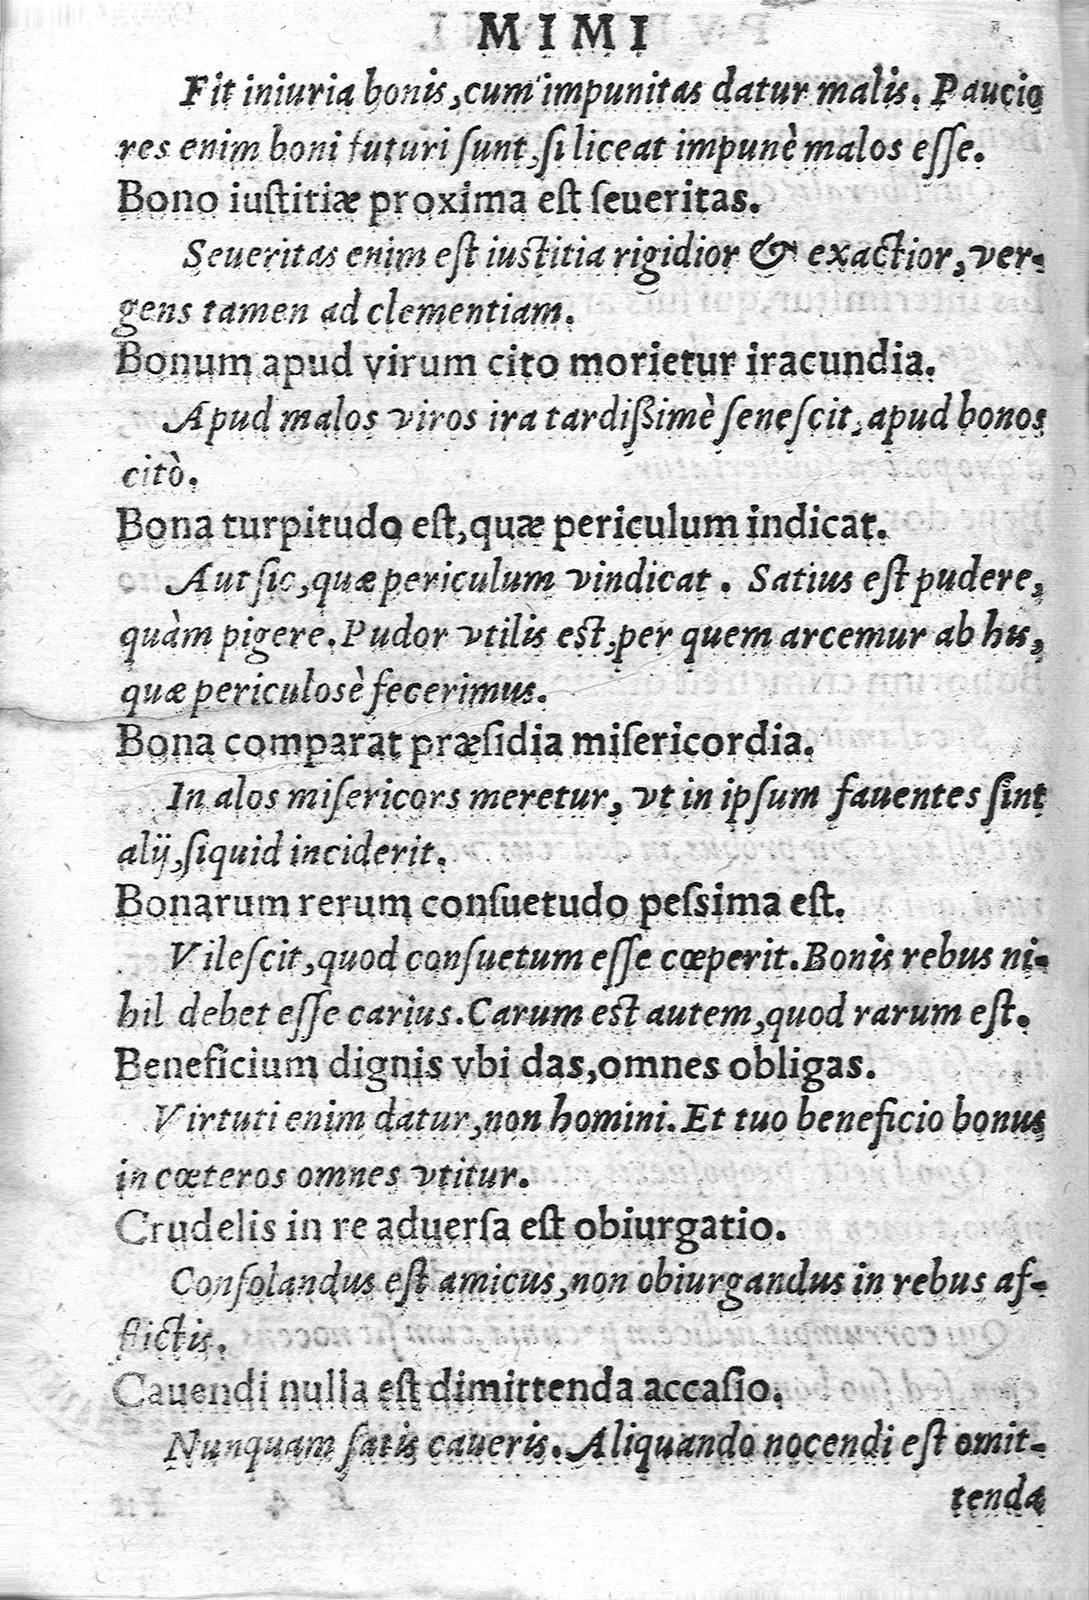 MIMI
Fit iniuria bonis, cum impunitas datur malis. Paucio
res enim boni futuri ſunt, ſi liceat impunè malos eſſe.
Bono iuſtitiæ proxima eſt ſeueritas.
Seueritas enim eſt iuſtitia rigidior & exactior, ver-
gens tamen ad clementiam.
Bonum apud virum cito morietur iracundia.
Apud malos viros ira tardißimè ſeneſcit, apud bonos
citò.
Bona turpitudo eſt, quæ periculum indicat.
Aut ſic, quæ periculum vindicat. Satius eſt pudere,
quàm pigere. Pudor vtilis eſt, per quem arcemur ab his,
quæ periculosè fecerimus.
Bona comparat præſidia miſericordia.
In alos miſericors meretur, vt in ipſum fauentes ſint
alij, ſiquid inciderit.
Bonarum rerum conſuetudo peſsima eſt.
Vileſcit, quod conſuetum eſſe cœperit. Bonis rebus ni-
hil debet eſſe carius. Carum eſt autem, quod rarum eſt.
Beneficium dignis vbi das, omnes obligas.
Virtuti enim datur, non homini. Et tuo beneficio bonus
in cœteros omnes vtitur.
Crudelis in re aduerſa eſt obiurgatio.
Conſolandus eſt amicus, non obiurgandus in rebus af-
flictis.
Cauendi nulla eſt dimittenda accaſio.
Nunquam ſatis caueris. Aliquando nocendi eſt omit-
tenda